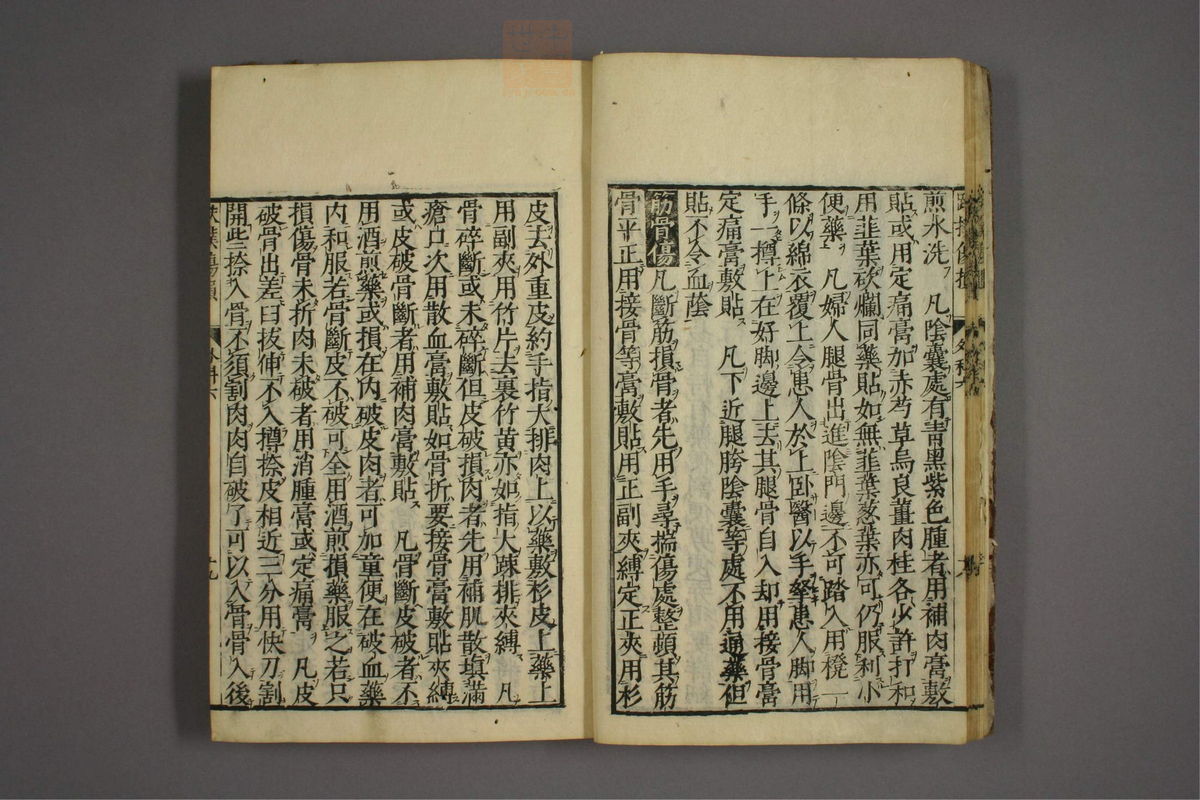 煎水洗 凡陰囊處有青黑紫色腫者用補肉膏敷
貼或用定痛膏加赤芍草烏良薑肉桂各少許打和
用韭葉砍爛同藥貼如無韭葉葱葉亦可仍服利小
便藥 凡婦人腿骨出進陰門邊不可踏入用櫈一
條以綿衣覆上令患人於上卧醫以手拏患人脚用
手一撙上在好脚邊上去其腿骨自入却用接骨膏
定痛膏敷貼 凡下近腿胯陰囊等處不用通藥但
貼不令血䕃
筋骨傷 凡斷筋損骨者先用手尋揣傷處整頓其筋
骨平正用接骨等膏敷貼用正副夾縛定正夾用杉
皮去外重皮約手指大排肉上以藥敷杉皮上藥上
用副夾用竹片去裏竹黄亦如指大踈排夾縛 凡
骨碎斷或未碎斷但皮破損肉者先用補肌散填滿
瘡口次用散血膏敷貼如骨折要接骨膏敷貼夾縛
或皮破骨斷者用補肉膏敷貼 凡骨斷皮破者不
用酒煎藥或損在内破皮肉者可加童便在破血藥
内和服若骨斷皮不破可全用酒煎損藥服之若只
損傷骨未折肉未破者用消腫膏或定痛膏 凡皮
破骨出差臼拔伸不入撙捺皮相近三分用快刀割
開些捺入骨不須割肉肉自破了可以入骨骨入後
外科六
十九